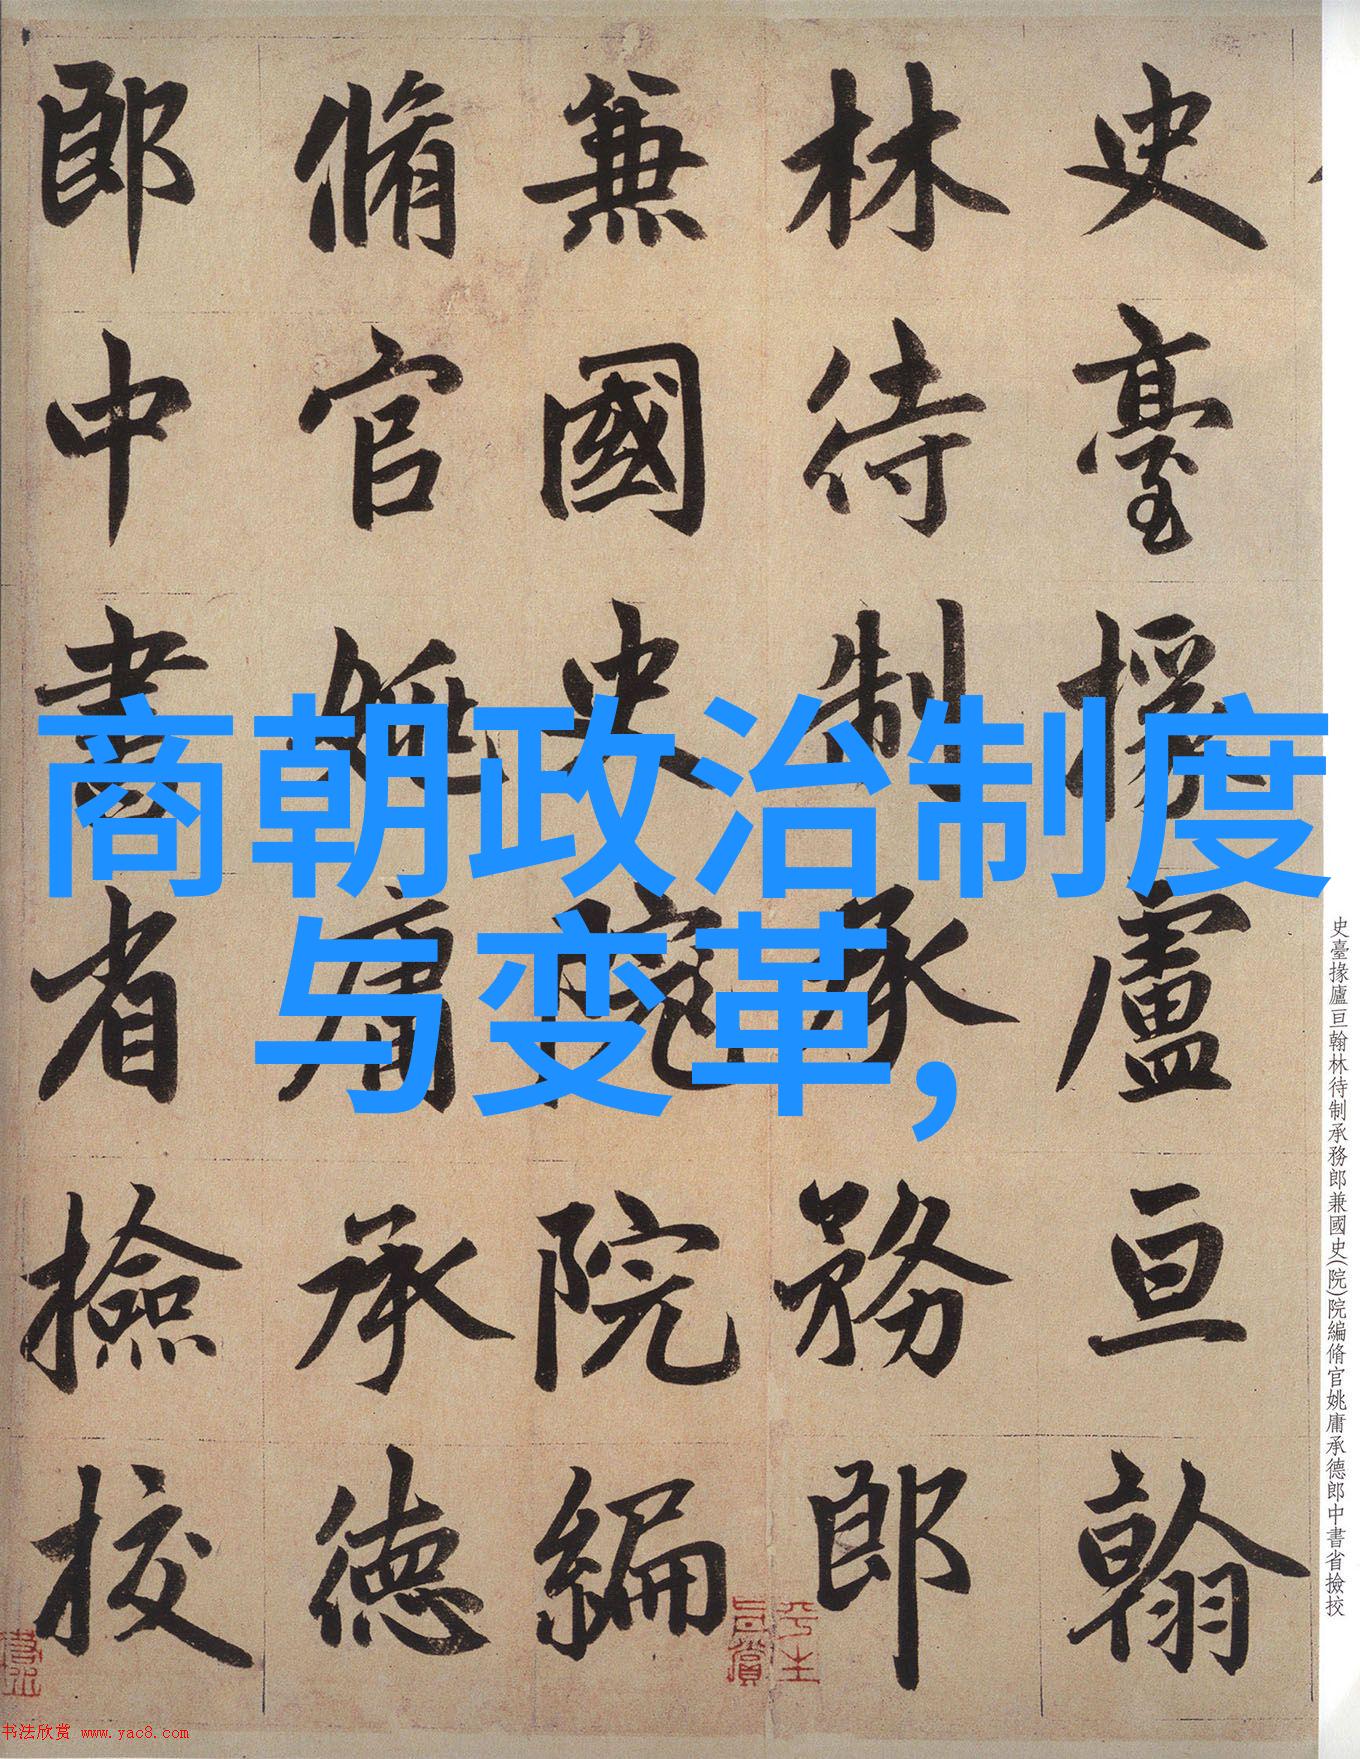 史臺掾廬亘翰
林待制承務郎
兼國史院院編
脩官姚庸承德
郎中書省撿挍
商朝政治制度
与变革,
史臺掾廬亘翰林待制承務郎兼國史(院)院編脩官姚庸承德郎中書省撿挍
书法欣赏 www.yac8.com